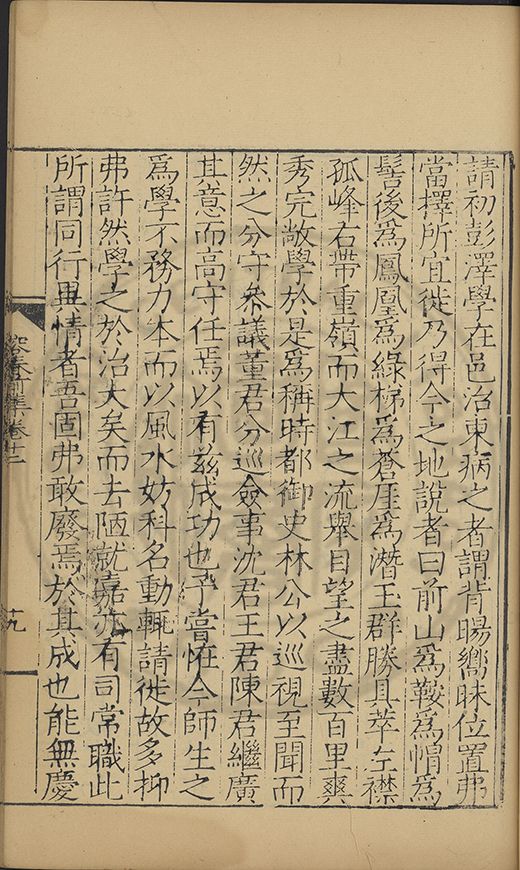 請初彭澤學在邑治東病之者謂背暘嚮昧位置弗
當擇所宜徙乃得今之地說者曰前山爲鞍爲㡌爲
髻後爲鳳凰爲綠梯爲蒼厓爲潛玉群勝具萃左襟
孤峰右帶重嶺而大江之流舉目望之盡數百里爽
秀完敞學於是爲稱時都御史林公以巡視至聞而
然之分守叅議董君分巡僉事沈君王君陳君繼廣
其意而高守任焉以有兹成功也予嘗怪今師生之
爲學不務力本而以風水妨科名動輒請徙故多抑
弗許然學之於治大矣而去陋就嘉亦有司常職此
所謂同行異情者吾固弗敢廢焉於其成也能無慶
容春前集卷十二
十九